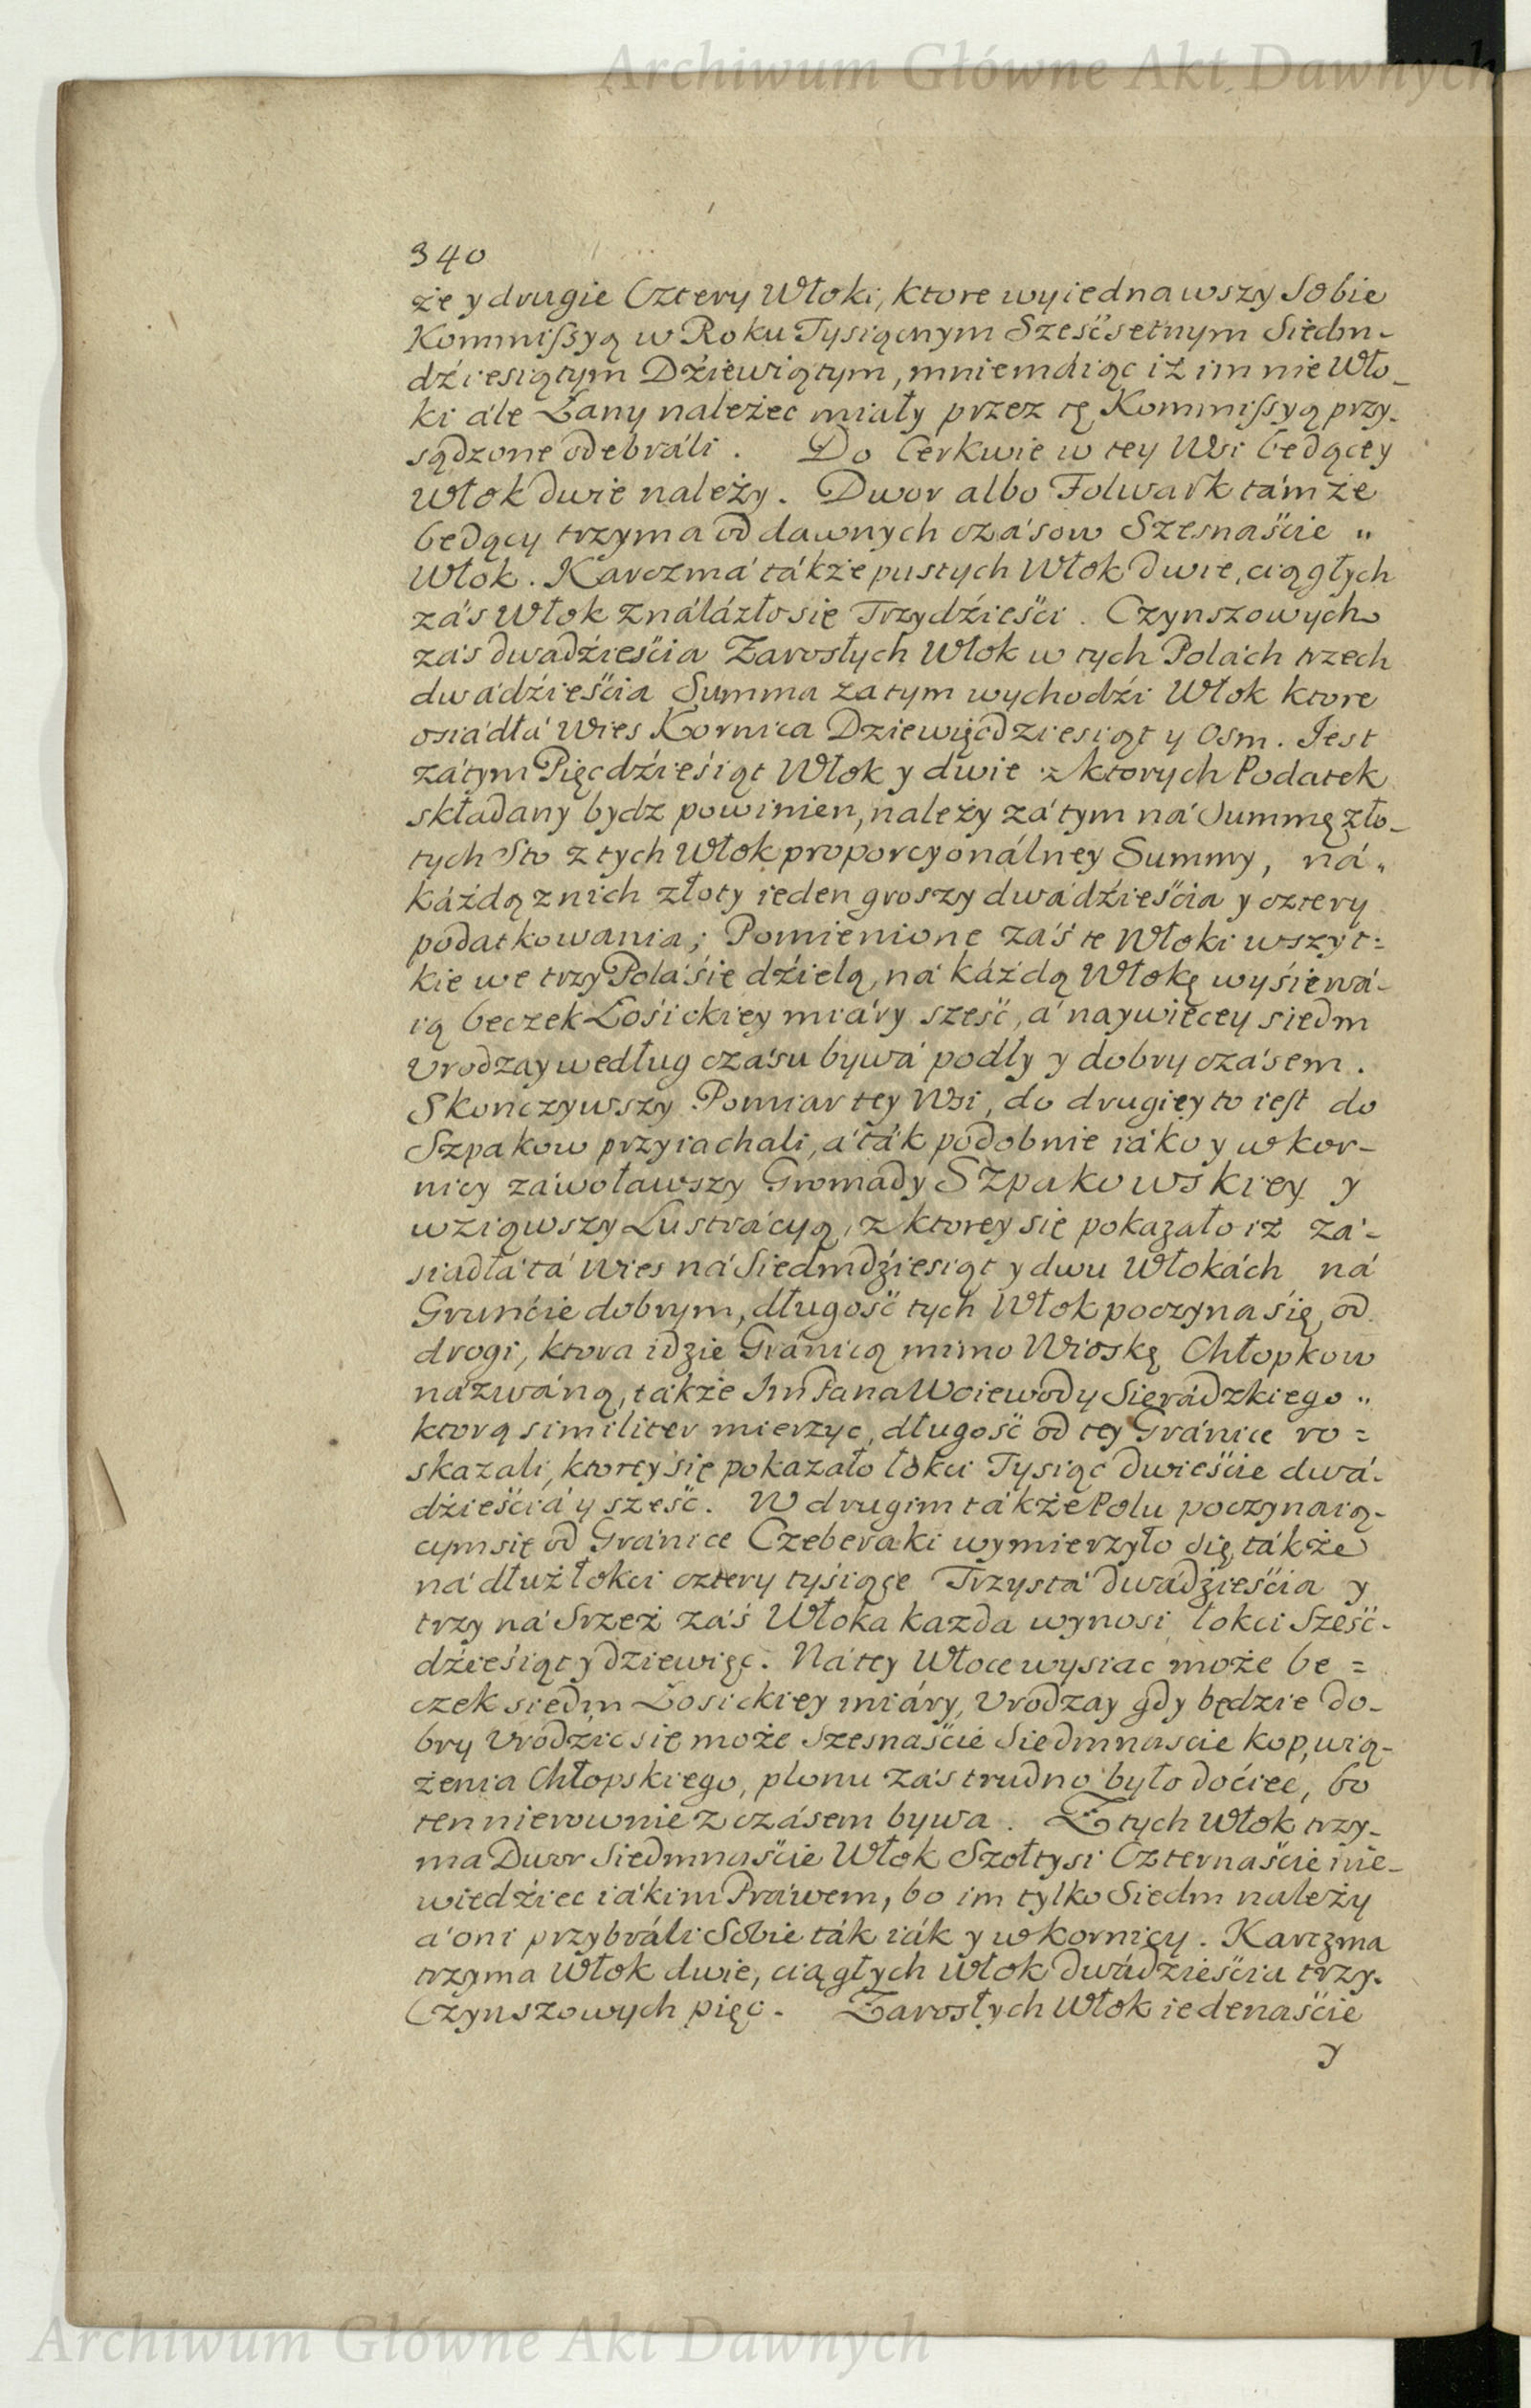 Archiwum Główne Akt Dawnych
340
że y drugie Cztery Włoki, ktore wyiednawszy Sobie
Kommissyą w Roku Tysiącnym Szescsetnym Siedm-
dźiesiątym Dźiewiątym, mniemáiąc iż im nie Wło-
ki ále Łany należec miały przez tę Kommissyą przy-
sądzone odebráli. Do Cerkwie w tey Wsi będącey
Włok dwie należy. Dwor albo Folwark támże
będący trzyma od dawnych czásow Szesnaście "
Włok. Karczmá tákże pustych Włok dwie, ciągłych
zás Włokználázło się Trzydźieści. Czynszowych
zás dwadźieścia Zarosłych Włok w tych Polách trzech
dwádźieścia Summa zatym wychodźi Włok ktore
osiádłá Wies Kornica Dziewięcdziesiąt y Osm. Jest
zátym Pięcdźieśiąt Włok y dwie z ktorych Podatek
składany bydz powinien, należy zátym ná Summę zło-
tych Sto z tych Włok proporcyonálney Summy, ná "
káżdą z nich złoty ieden groszy dwádźieścia y cztery
podatkowania; Pomienione záś te Włoki wszyt=
kie we trzy Polá śie dźielą, ná káżdą Włokę wyśiewá-
ią beczek Łośickiey miáry sześć, á naywięcey siedm
Vrodzay według czásu bywá podły y dobry czásem.
Skonczywszy Pomiar tey Wsi, do drugiey to iest do
Szpakow przyiachali, á ták podobnie iáko y w kor-
nicy záwoławszy Gromady Szpakowskiey y
wziąwszy Lustrácyą, z ktorey się pokazało iż zá-
siadłá tá Wies ná Siedmdźiesiąt y dwu Włokách ná
Grunćie dobrym, długość tych Włok poczyna się, od
drogi, ktora idzie Gránicą mimo Wioskę Chłopkow
názwáną, tákże Jm Pana Woiewody Sierádzkiego "
ktorą similiter mierzyc, długość od tey Gránice ro=
skazali, ktorey się pokazało łokci Tysiąc dwieście dwá-
dźieściá y sześć. W drugim tákże Polu poczynaią-
cym się od Gránice Czeberaki wymierzyło się tákże
ná dłuż łokci cztery tyśiące Trzystá dwádźieścia y
trzy ná Srzeż záś Włoka kazda wynosi łokci Sześć-
dźieśiąt y dziewięc. Ná tey Włoce wysiac może be=
czek siedm Łosickiey miáry, Vrodzay gdy będzie do-
bry Vrodzic się może Szesnaście Siedmnascie kop, wią-
żenia Chłopskiego, plonu zás trudno było doćiec, bo
ten nierownie z czásem bywa. Z tych Włok trzy-
ma Dwor Siedmnaście Włok Szołtysi Czternaście nie-
wiedźiec iákim Práwem, bo im tylko Siedm należy
á oni przybráli Sobie ták iák y w kornicy. Karczma
trzyma Włok dwie, ciągłych Włok dwádzieścia trzy.
Czynszowych pięc. Zarosłych Włok iedenaście
y
Archiwum Główne Akt Dawnych